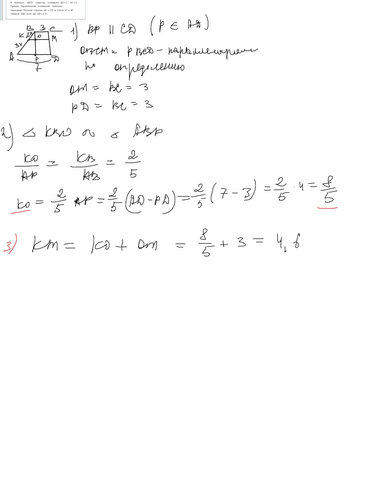 B 3 C
K O M
3x
A P D
7
1) BP || CD (P ∈ AD)
OBCM и PBCD - параллелограммы
по определению
OM = BC = 3
PD = BC = 3
2) △ KBO ∾ △ ABP
KO/AP = KB/AB = 2/5
KO = 2/5 AP = 2/5 (AD - PD) = 2/5 (7 - 3) = 2/5 · 4 = 8/5
3) KM = KO + OM = 8/5 + 3 = 4,6